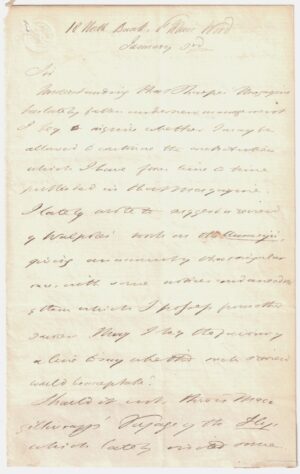 18 North Bank, St Johns Wood
January 3rd
Sir
Understanding that Sharpes Magazine
has lately fallen under new management
I beg to inquire whether I may be
allowed to continue the contributions
which I have from time to time
published in that Magazine
I lately wrote to suggest a review
of Walpole's work on
giving an account of that singular
man, with some notices and anecdotes
of them which I possess from other
sources May I beg the favour of
a line to say whether such a review
would be acceptable?
Should it not, there is Mac
gillivray's Voyage of the Fly
which lately visited some